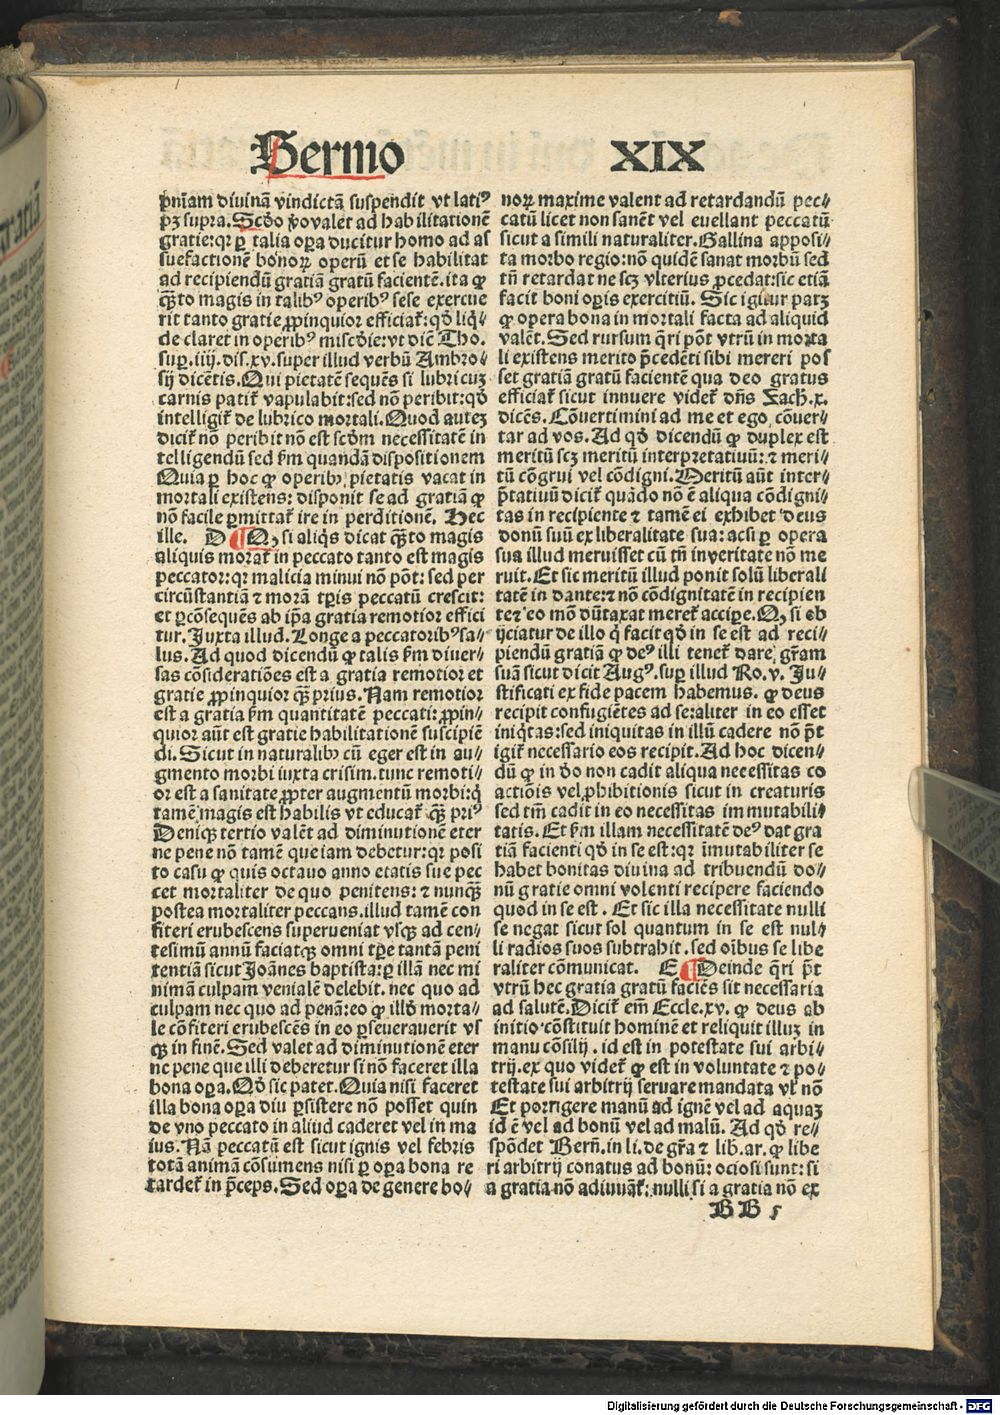 Sermo XIX
pnīam diuinā vindictā suspendit vt latiꝰ
pꝫ supra. Scḋo p̄ualet ad habilitationē
gratie: qꝛ ꝑ talia oꝑa ducitur homo ad as
suefactionē bonoꝝ operū et se habilitat
ad recipiendū gratiā gratū facientē. ita ꝙ
q̈ꝫto magis in talibꝰ operibꝰ sese exercue
rit tanto gratie ꝓpinquior efficiat̃: qḋ liq̇⸗
de claret in operibꝰ miscḋie: vt diċ Tho.
suꝑ .iiij. dis. xv. super illud verbū Ambro⸗
sij dicētis. Qui pietatē sequēs si lubricuꝫ
carnis patit̃ vapulabit: sed nō peribit: qḋ
intelligit̃ de lubrico mortali. Quod auteꝫ
dicit̃ nō peribit nō est scḋm necessitatē in
telligendū sed ẜm quandā dispositionem
Quia ꝑ hoc ꝙ operibꝰ pietatis vacat in
mortali existens: disponit se ad gratiā ꝙ
nō facile ꝑmittat̃ ire in perditionē. Hec
ille. D ¶ Qꝫ si aliq̇s dicat q̈ꝫto magis
aliquis morat̃ in peccato tanto est magis
peccator: qꝛ malicia minui nō pōt: sed per
circūstantiā ⁊ morā tꝑis peccatū crescit:
et ꝑcōsequēs ab ip̄a gratia remotior effici
tur. Juxta illud. Longe a peccatoribꝰ sa⸗
lus. Ad quod dicendū ꝙ talis ẜm diuer⸗
sas cōsideratiōes est a gratia remotior et
gratie ꝓpinquior q̈ꝫ prius. Nam remotior
est a gratia ẜm quantitatē peccati: ꝓpin⸗
quior aūt est gratie habilitationē suscipiē
di. Sicut in naturalibꝰ cū eger est in au⸗
gmento morbi iuxta crisim. tunc remoti⸗
or est a sanitate ꝓpter augmentū morbi: q̇
tamē magis est habilis vt educat̃ q̈ꝫ priꝰ
Deniqꝫ tertio valēt ad diminutionē eter
ne pene nō tamē que iam debetur: qꝛ posi
to casu ꝙ quis octauo anno etatis sue pec
cet mortaliter de quo penitens: ⁊ nunq̈ꝫ
postea mortaliter peccans. illud tamē con
fiteri erubescens superueniat vsqꝫ ad cen⸗
tesimū annū faciatqꝫ omni tꝑe tantā peni
tentiā sicut Joānes baptista: ꝑ illā nec mi
nimā culpam venialē delebit. nec quo ad
culpam nec quo ad penā: eo ꝙ illḋ morta⸗
le cōfiteri erubescēs in eo ꝑseuerauerit vs
qꝫ in finē. Sed valet ad diminutionē eter
ne pene que illi deberetur si nō faceret illa
bona oꝑa. Qḋ sic patet. Quia nisi faceret
illa bona oꝑa diu ꝑsistere nō posset quin
de vno peccato in aliud caderet vel in ma
ius. Nā peccatū est sicut ignis vel febris
totā animā cōsumens nisi ꝑ oꝑa bona re
tardet̃ in p̄ceps. Sed oꝑa de genere bo⸗
noꝝ maxime valent ad retardandū pec⸗
catū licet non sanēt vel euellant peccatū
sicut a simili naturaliter. Gallina apposi⸗
ta morbo regio: nō quidē sanat morbū sed
tn̄ retardat ne scꝫ vlterius ꝓcedat: sic etiā
facit boni oꝑis exercitiū. Sic igitur patꝫ
ꝙ opera bona in mortali facta ad aliquid
valēt. Sed rursum q̄ri pōt vtrū in morta
li existens merito p̄cedēti sibi mereri pos
set gratiā gratū facientē qua deo gratus
efficiat̃ sicut innuere videt̃ dn̄s Zach. x.
dicēs. Cōuertimini ad me et ego cōuer⸗
tar ad vos. Ad qḋ dicendū ꝙ duplex est
meritū scꝫ meritū interpretatiuū: ⁊ meri⸗
tū cōgrui vel cōdigni. Meritū aūt inter⸗
p̄tatiuū dicit̃ quādo nō ē aliqua cōdigni⸗
tas in recipiente ⁊ tamē ei exhibet deus
donū suū ex liberalitate sua: acsi ꝑ opera
sua illud meruisset cū tn̄ inveritate nō me
ruit. Et sic meritū illud ponit solū liberali
tatē in dante: ⁊ nō cōdignitatē in recipien
te ⁊ eo mō dūtaxat meret̃ acciꝑe. Qꝫ si ob
ijciatur de illo q̇ facit qḋ in se est ad reci⸗
piendū gratiā ꝙ deꝰ illi tenet̃ dare gr̄am
suā sicut dicit Augꝰ. suꝑ illud Ro. v. Ju⸗
stificati ex fide pacem habemus. ꝙ deus
recipit confugiētes ad se: aliter in eo esset
iniq̇tas: sed iniquitas in illū cadere nō pōt
igit̃ necessario eos recipit. Ad hoc dicen⸗
dū ꝙ in deo non cadit aliqua necessitas co
actiōis vel ꝓhibitionis sicut in creaturis
sed tm̄ cadit in eo necessitas immutabili⸗
tatis. Et ẜm illam necessitatē deꝰ dat gra
tiā facienti qḋ in se est: qꝛ īmutabiliter se
habet bonitas diuina ad tribuendū do⸗
nū gratie omni volenti recipere faciendo
quod in se est. Et sic illa necessitate nulli
se negat sicut sol quantum in se est nul⸗
li radios suos subtrahit. sed oībus se libe
raliter cōmunicat. E ¶ Deinde q̄ri p̄t
vtrū hec gratia gratū faciēs sit necessaria
ad salutē. Dicit̃ em̄ Eccle. xv. ꝙ deus ab
initio cōstituit hominē et reliquit illuꝫ in
manu cōsilij. id est in potestate sui arbi⸗
trij. ex quo videt̃ ꝙ est in voluntate ⁊ po⸗
testate sui arbitrij seruare mandata vl̓ nō
Et porrigere manū ad ignē vel ad aquaꝫ
id ē vel ad bonū vel ad malū. Ad qḋ re⸗
spōdet Bern̄. in li. de gr̄a ⁊ lib. ar. ꝙ libe
ri arbitrij conatus ad bonū: ociosi sunt: si
a gratia nō adiuuāt̃: nulli si a gratia nō ex
BB 5
Digitalisierung gefördert durch die Deutsche Forschungsgemeinschaft - DFG